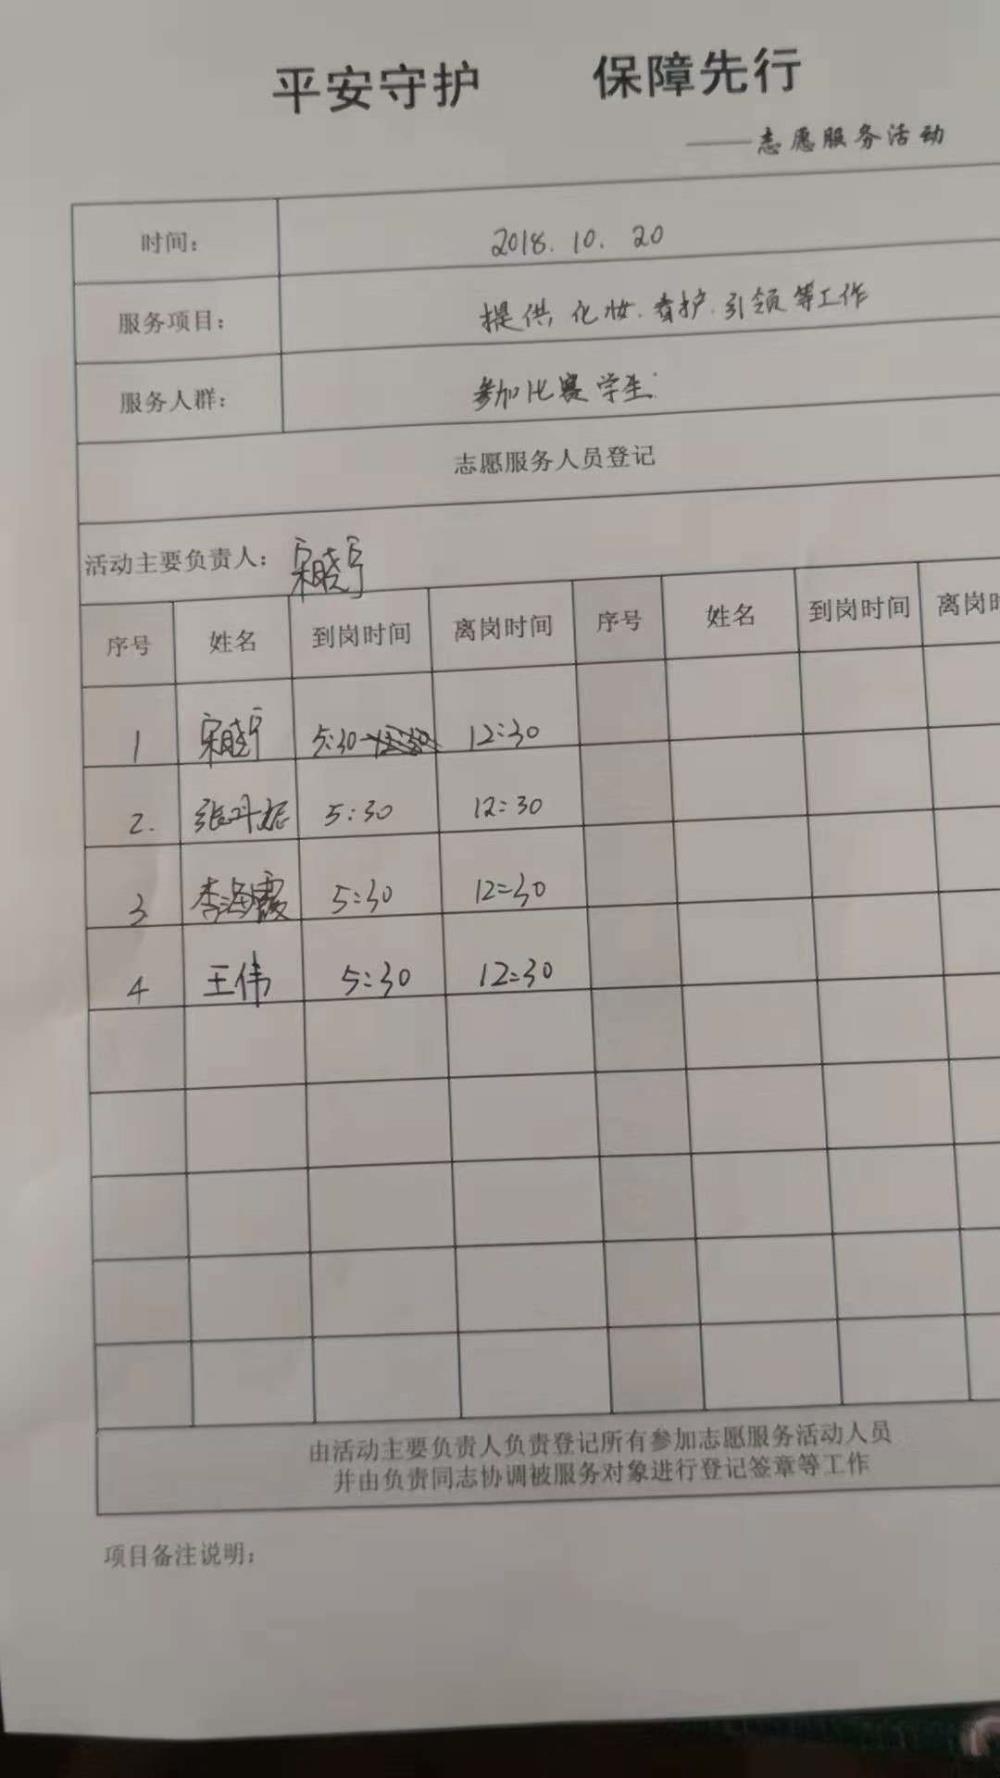 平安守护 保障先行
——志愿服务活动
时间： 2018.10.20
服务项目： 提供化妆.看护.引领等工作
服务人群： 参加比赛学生.
志愿服务人员登记
活动主要负责人： 宋晓宁
序号 姓名 到岗时间 离岗时间 序号 姓名 到岗时间 离岗时
1 宋晓宁 5:30 12:30
2. 张 5:30 12:30
3 李海霞 5:30 12:30
4 王伟 5:30 12:30
由活动主要负责人负责登记所有参加志愿服务活动人员
并由负责同志协调被服务对象进行登记签章等工作
项目备注说明：